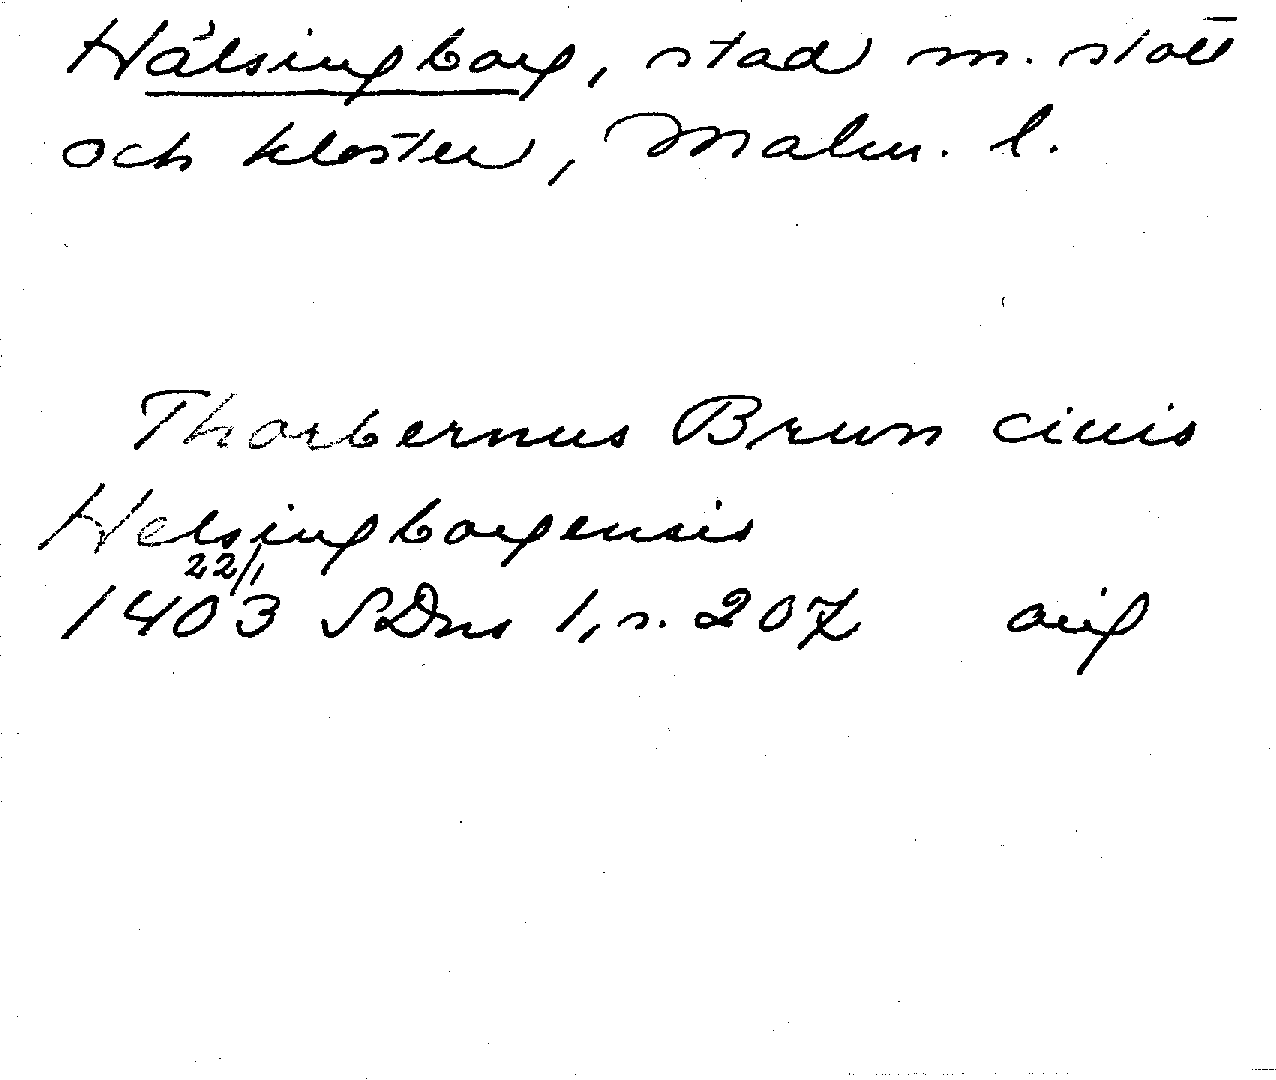 Hälsingborg, stad m. slott
och kloster, Malm. l.
Thorbernus Brun ciuis
Helsingborgensis
22/1
1403 SDns 1, s. 207 orig